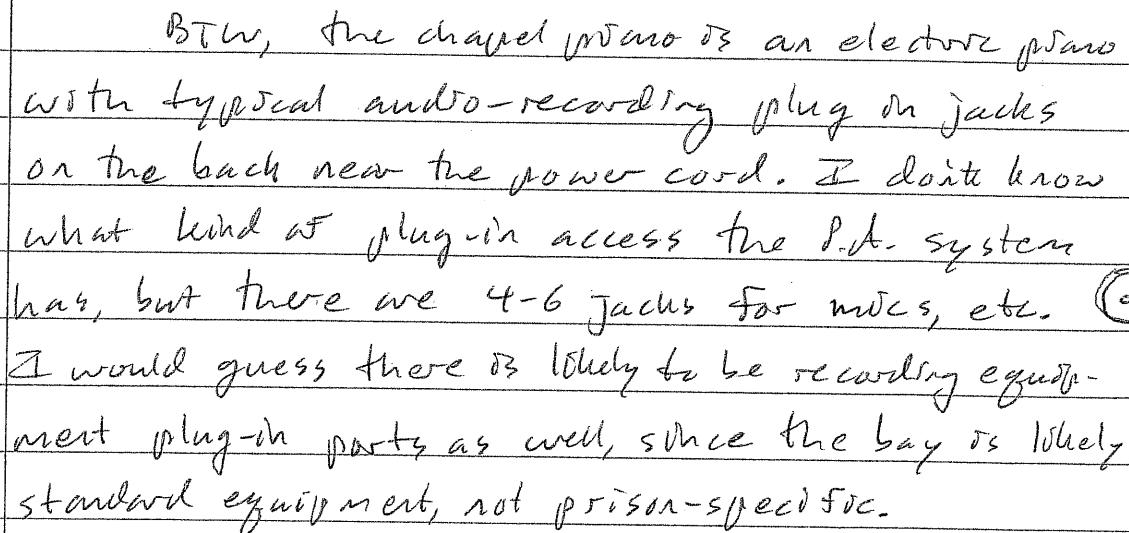 BTW, the chapel piano is an electric piano
with typical audio-recording plug in jacks
on the back near the power cord. I don't know
what kind of plug-in access the P.A. system
has, but there are 4-6 jacks for mics, etc.
I would guess there is likely to be recording equip-
ment plug-in ports as well, since the bay is likely
standard equipment, not prison-specific.